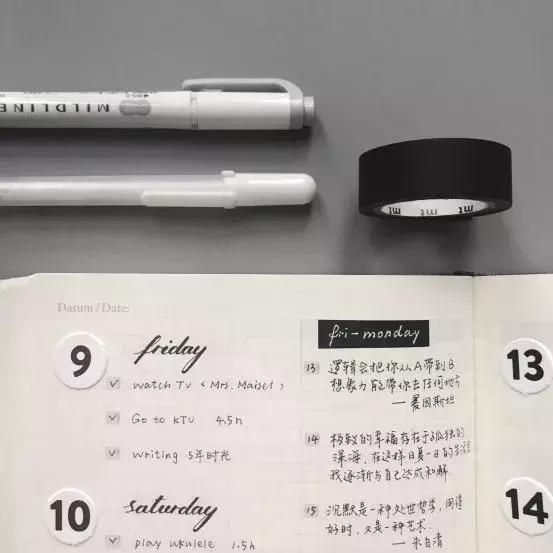 MILDLINE
mt mt mt
Datum / Date:
9
friday
watch TV 《Mrs. Maisel》
Go to KTV 4.5h
writing 5年时光
10
saturday
play ukulele 1.5h
fri-monday
13 逻辑会把你从A带到B
想象力能带你去任何地方
— 爱因斯坦
14 极致的幸福存在于孤独的
深海，在这样日复一日的生活里
我逐渐与自己达成和解.
15 沉默是一种处世哲学，用得
好时，又是一种艺术.
— 朱自清
13
14